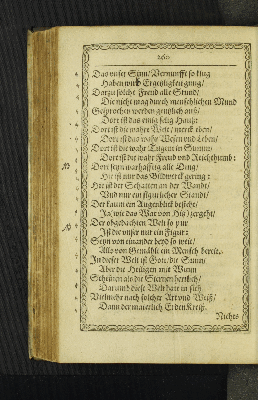 260
Das unser Sinn/ Vernunfft so klug
Haben wird Ergetzligkeit gnug/
Darzu solche Freud alle Stund/
Die nicht mag durch menschlichen Mund
Gesprochen werden gentzlich auß/
Dort ist das einig selig Hauß:
Dort ist die wahre Welt/ merck eben/
Dort ist das wahr Wesen und Leben/
Dort ist die wahr Tugent in Summ/
Dort ist die wahr Freud und Reichthumb:
Dort seyn warhafftig alle Ding/
Hie ist nur das Bildwerck gering:
Hie ist der Schatten an der Wandt/
Und nur ein figürlicher Standt/
Der kaum ein Augenblick besteht/
Ja/ wie das War von Hitz zergeht/
Der obgedachten Welt so pur
Ist die unser nur ein Figur:
Seyn von einander beyd so weit/
Als von Gemählt ein Mensch bereit.
In dieser Welt ist Gott/ die Sunn/
Aber die Heiligen mit Wunn
Scheinen als die Sternen herrlich/
Darumb diese Welt hatt in sich
Vielmehr nach solcher Art und Weiß/
Dann der materlich Erden Kreiß.
Nichts